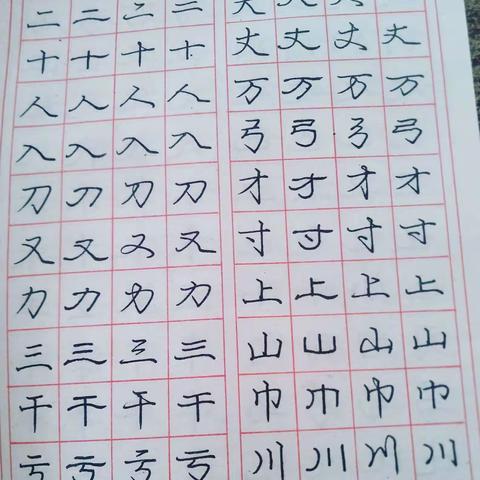 二 二 二 二
十 十 十 十
人 人 人 人
入 入 入 入
刀 刀 刀 刀
又 又 又 又
力 力 力 力
三 三 三 三
干 干 干 干
亏 亏 亏 亏
丈 丈 丈 丈
万 万 万 万
弓 弓 弓 弓
才 才 才 才
寸 寸 寸 寸
上 上 上 上
山 山 山 山
巾 巾 巾 巾
川 川 川 川